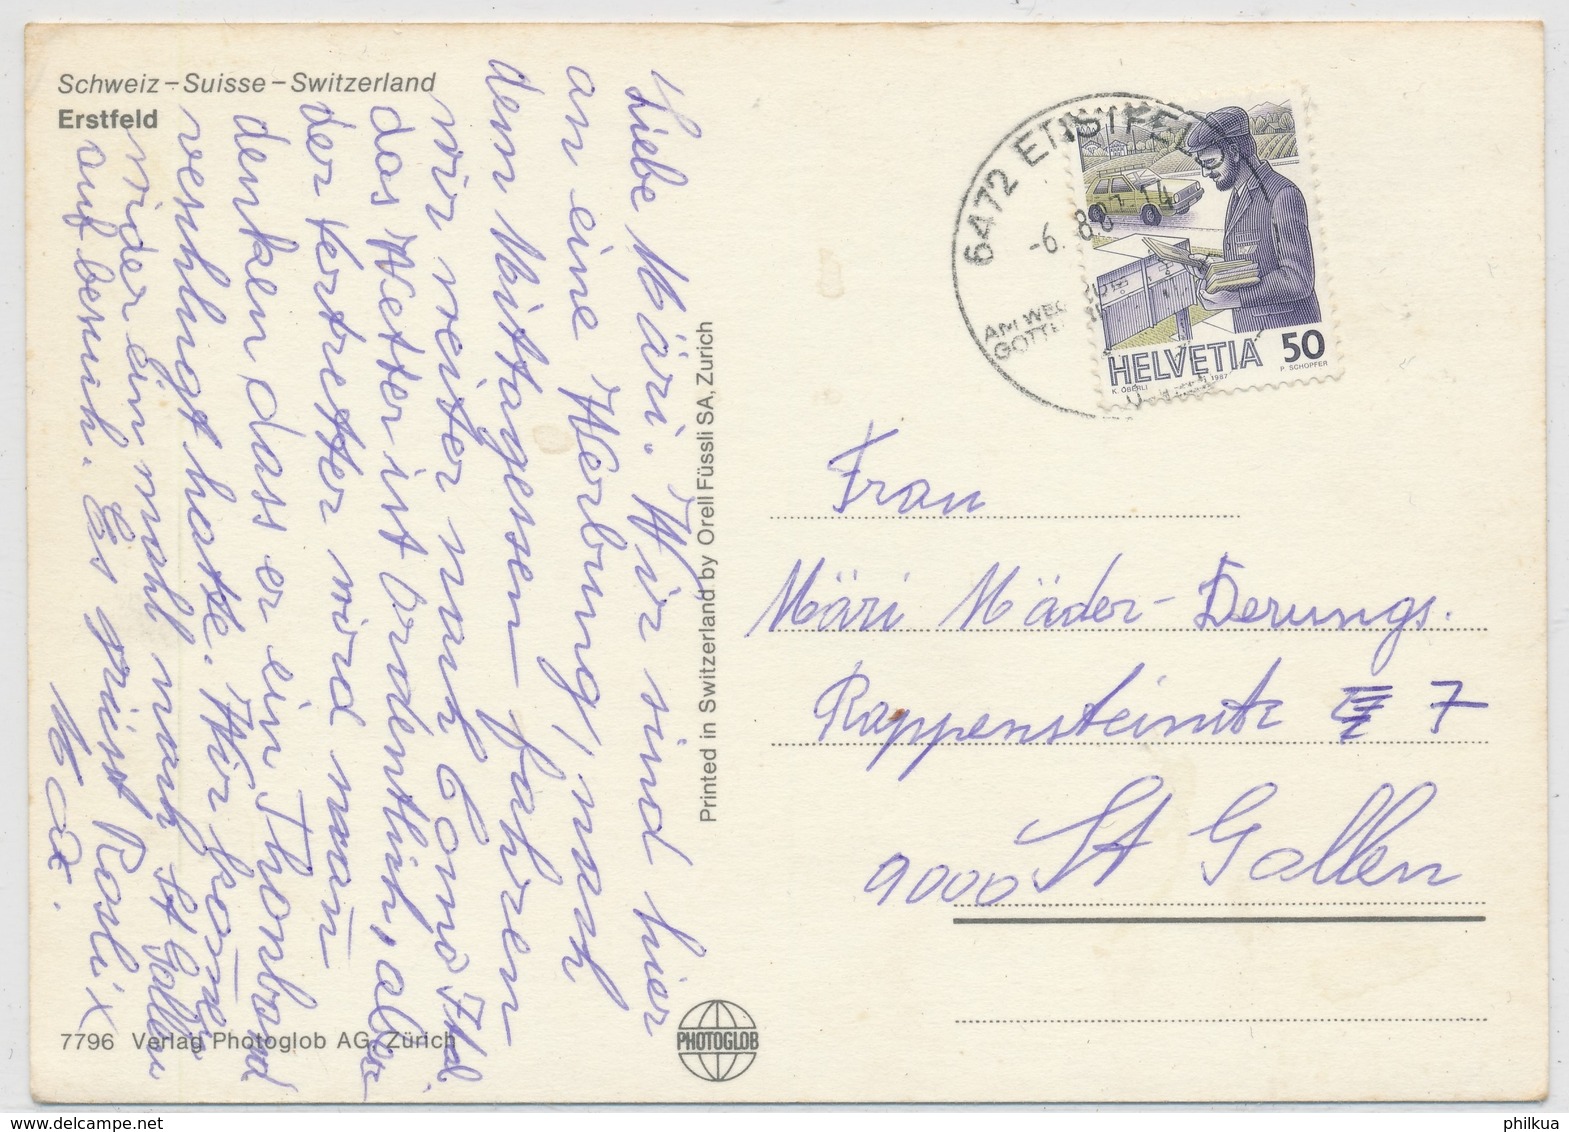 Schweiz – Suisse – Switzerland
Erstfeld
Liebe Märi. Wir sind hier
an eine Werbung, nach
dem Mittagessen fahren
wir weiter nach Como Ital
das Wetter ist ordentlich, aber
der Vertretter wird man
denken dass er ein Thonband
verschlugt hatte. Wir kommen
wider ein mahl nach St Gallen
auf besuch. Es grüsst Rosli x
Max.
7796 Verlag Photoglob AG, Zürich
Printed in Switzerland by Orell Füssli SA, Zurich
PHOTOGLOB
6472 ERSTFELD
-6. 8.8
AM WEG
HELVETIA 50
K. OBERLI 1987 P. SCHOPFER
Frau
Märi Mäder-Derungs.
Rappensteinstr 7
9000 St Gallen
philkua